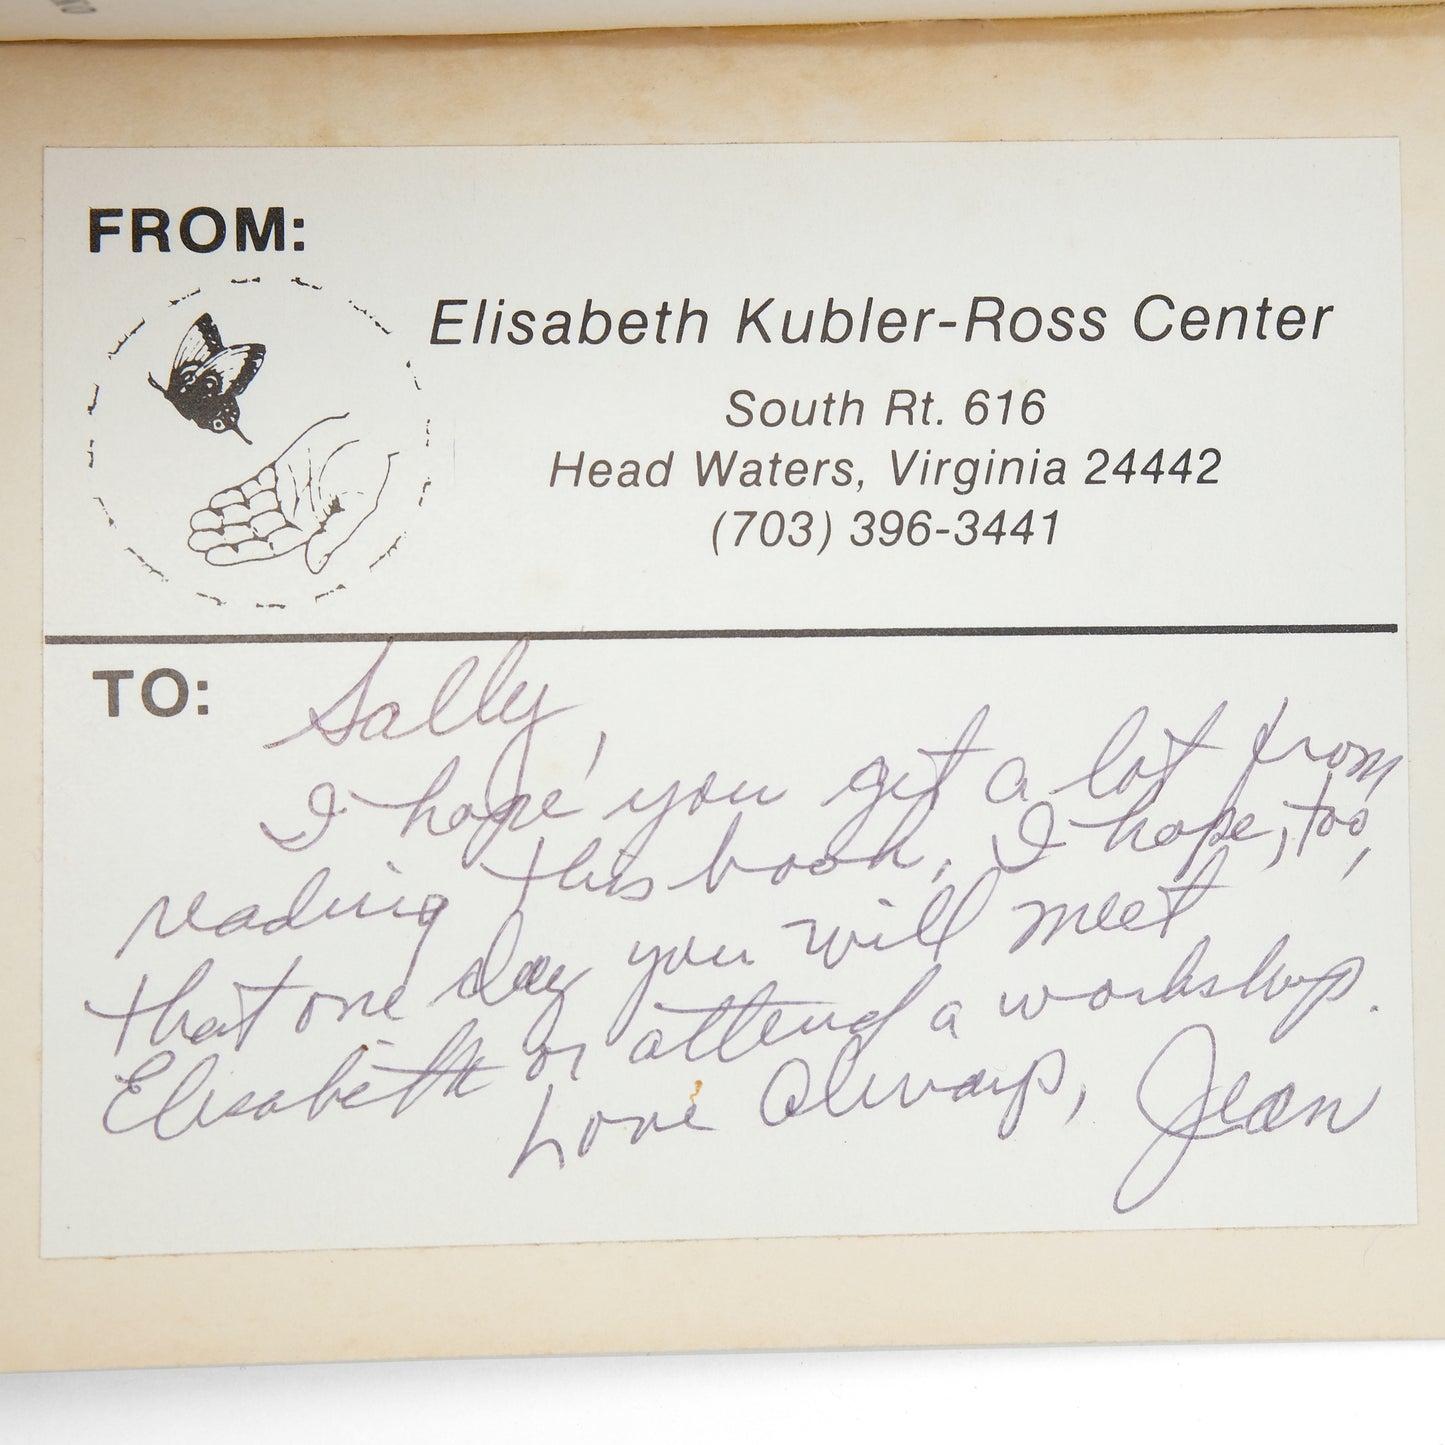 FROM:
Elisabeth Kubler-Ross Center
South Rt. 616
Head Waters, Virginia 24442
(703) 396-3441
TO:
Sally,
I hope you get a lot from
reading this book. I hope, too,
that one day you will meet
Elisabeth or attend a workshop.
Love Always, Jean